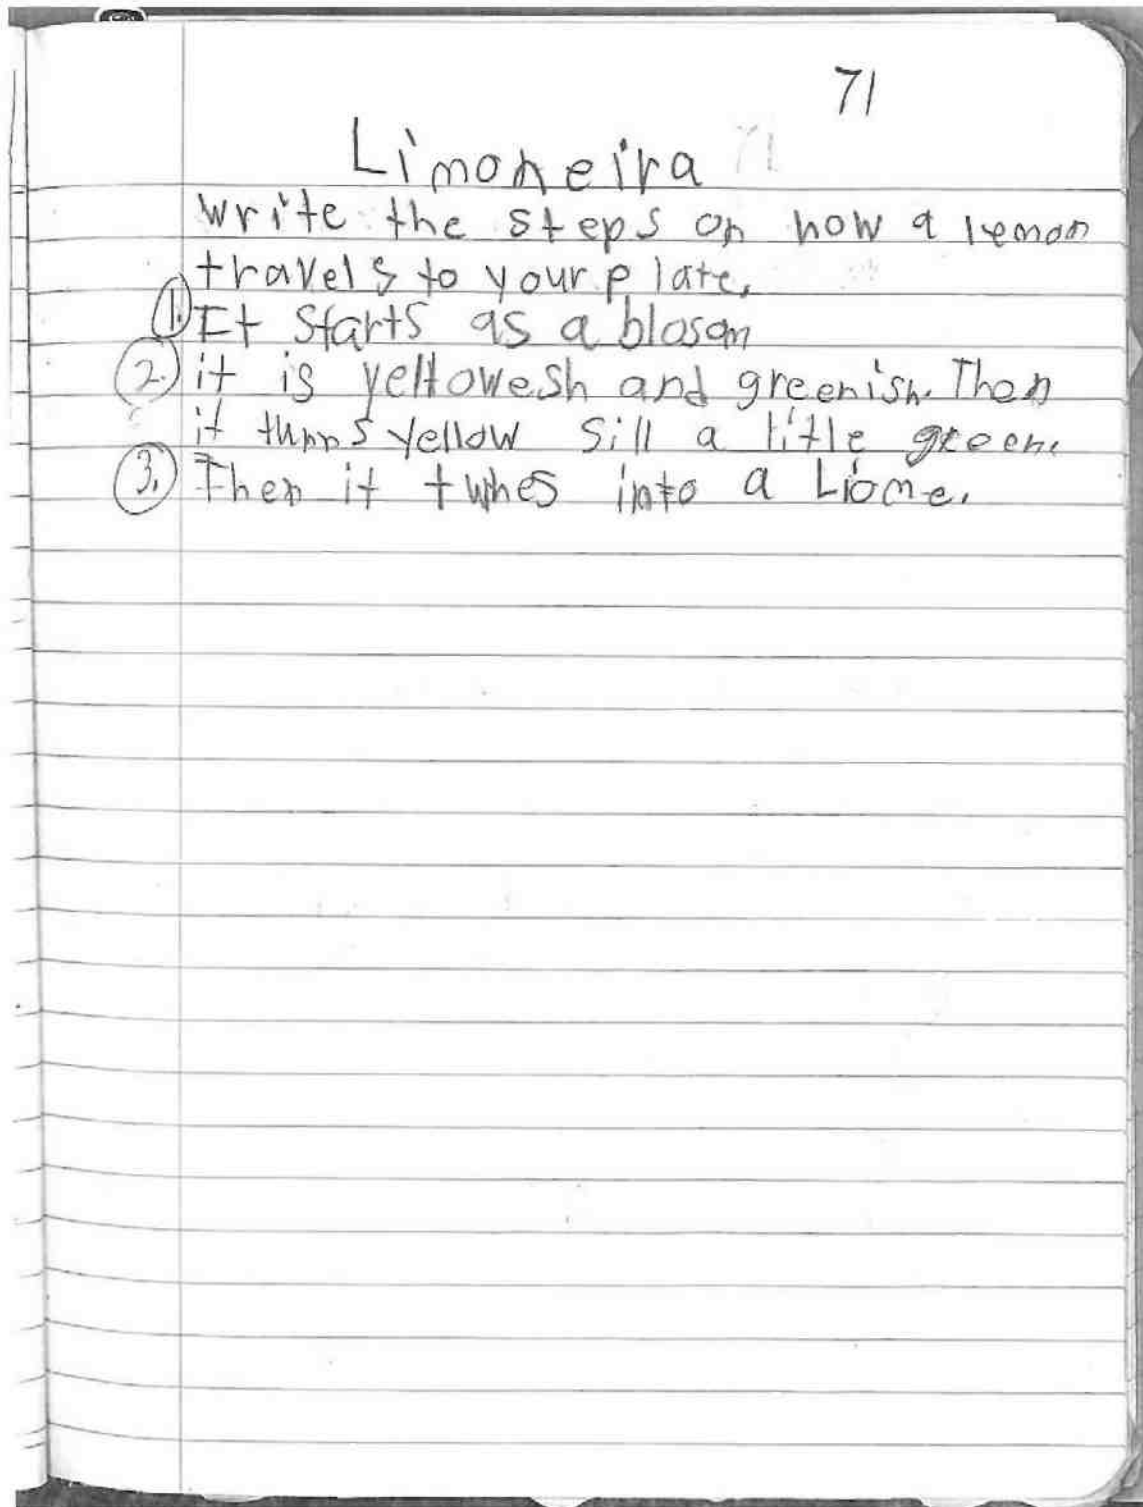 71
Limoneira
write the steps on how a lemon
travels to your plate.
1. It starts as a blosom
2. it is yellowesh and greenish. Then
it turns yellow sill a litle green.
3. Then it tunes into a Liome.